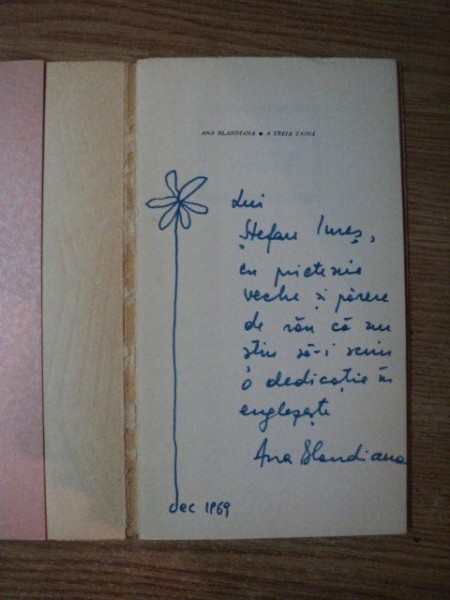 ANA BLANDIANA ● A TREIA TAINĂ
Lui
Ștefan Iureș,
cu prietenie
veche și părere
de rău că nu
știu să-i scriu
o dedicație în
englezește
Ana Blandiana
dec 1969